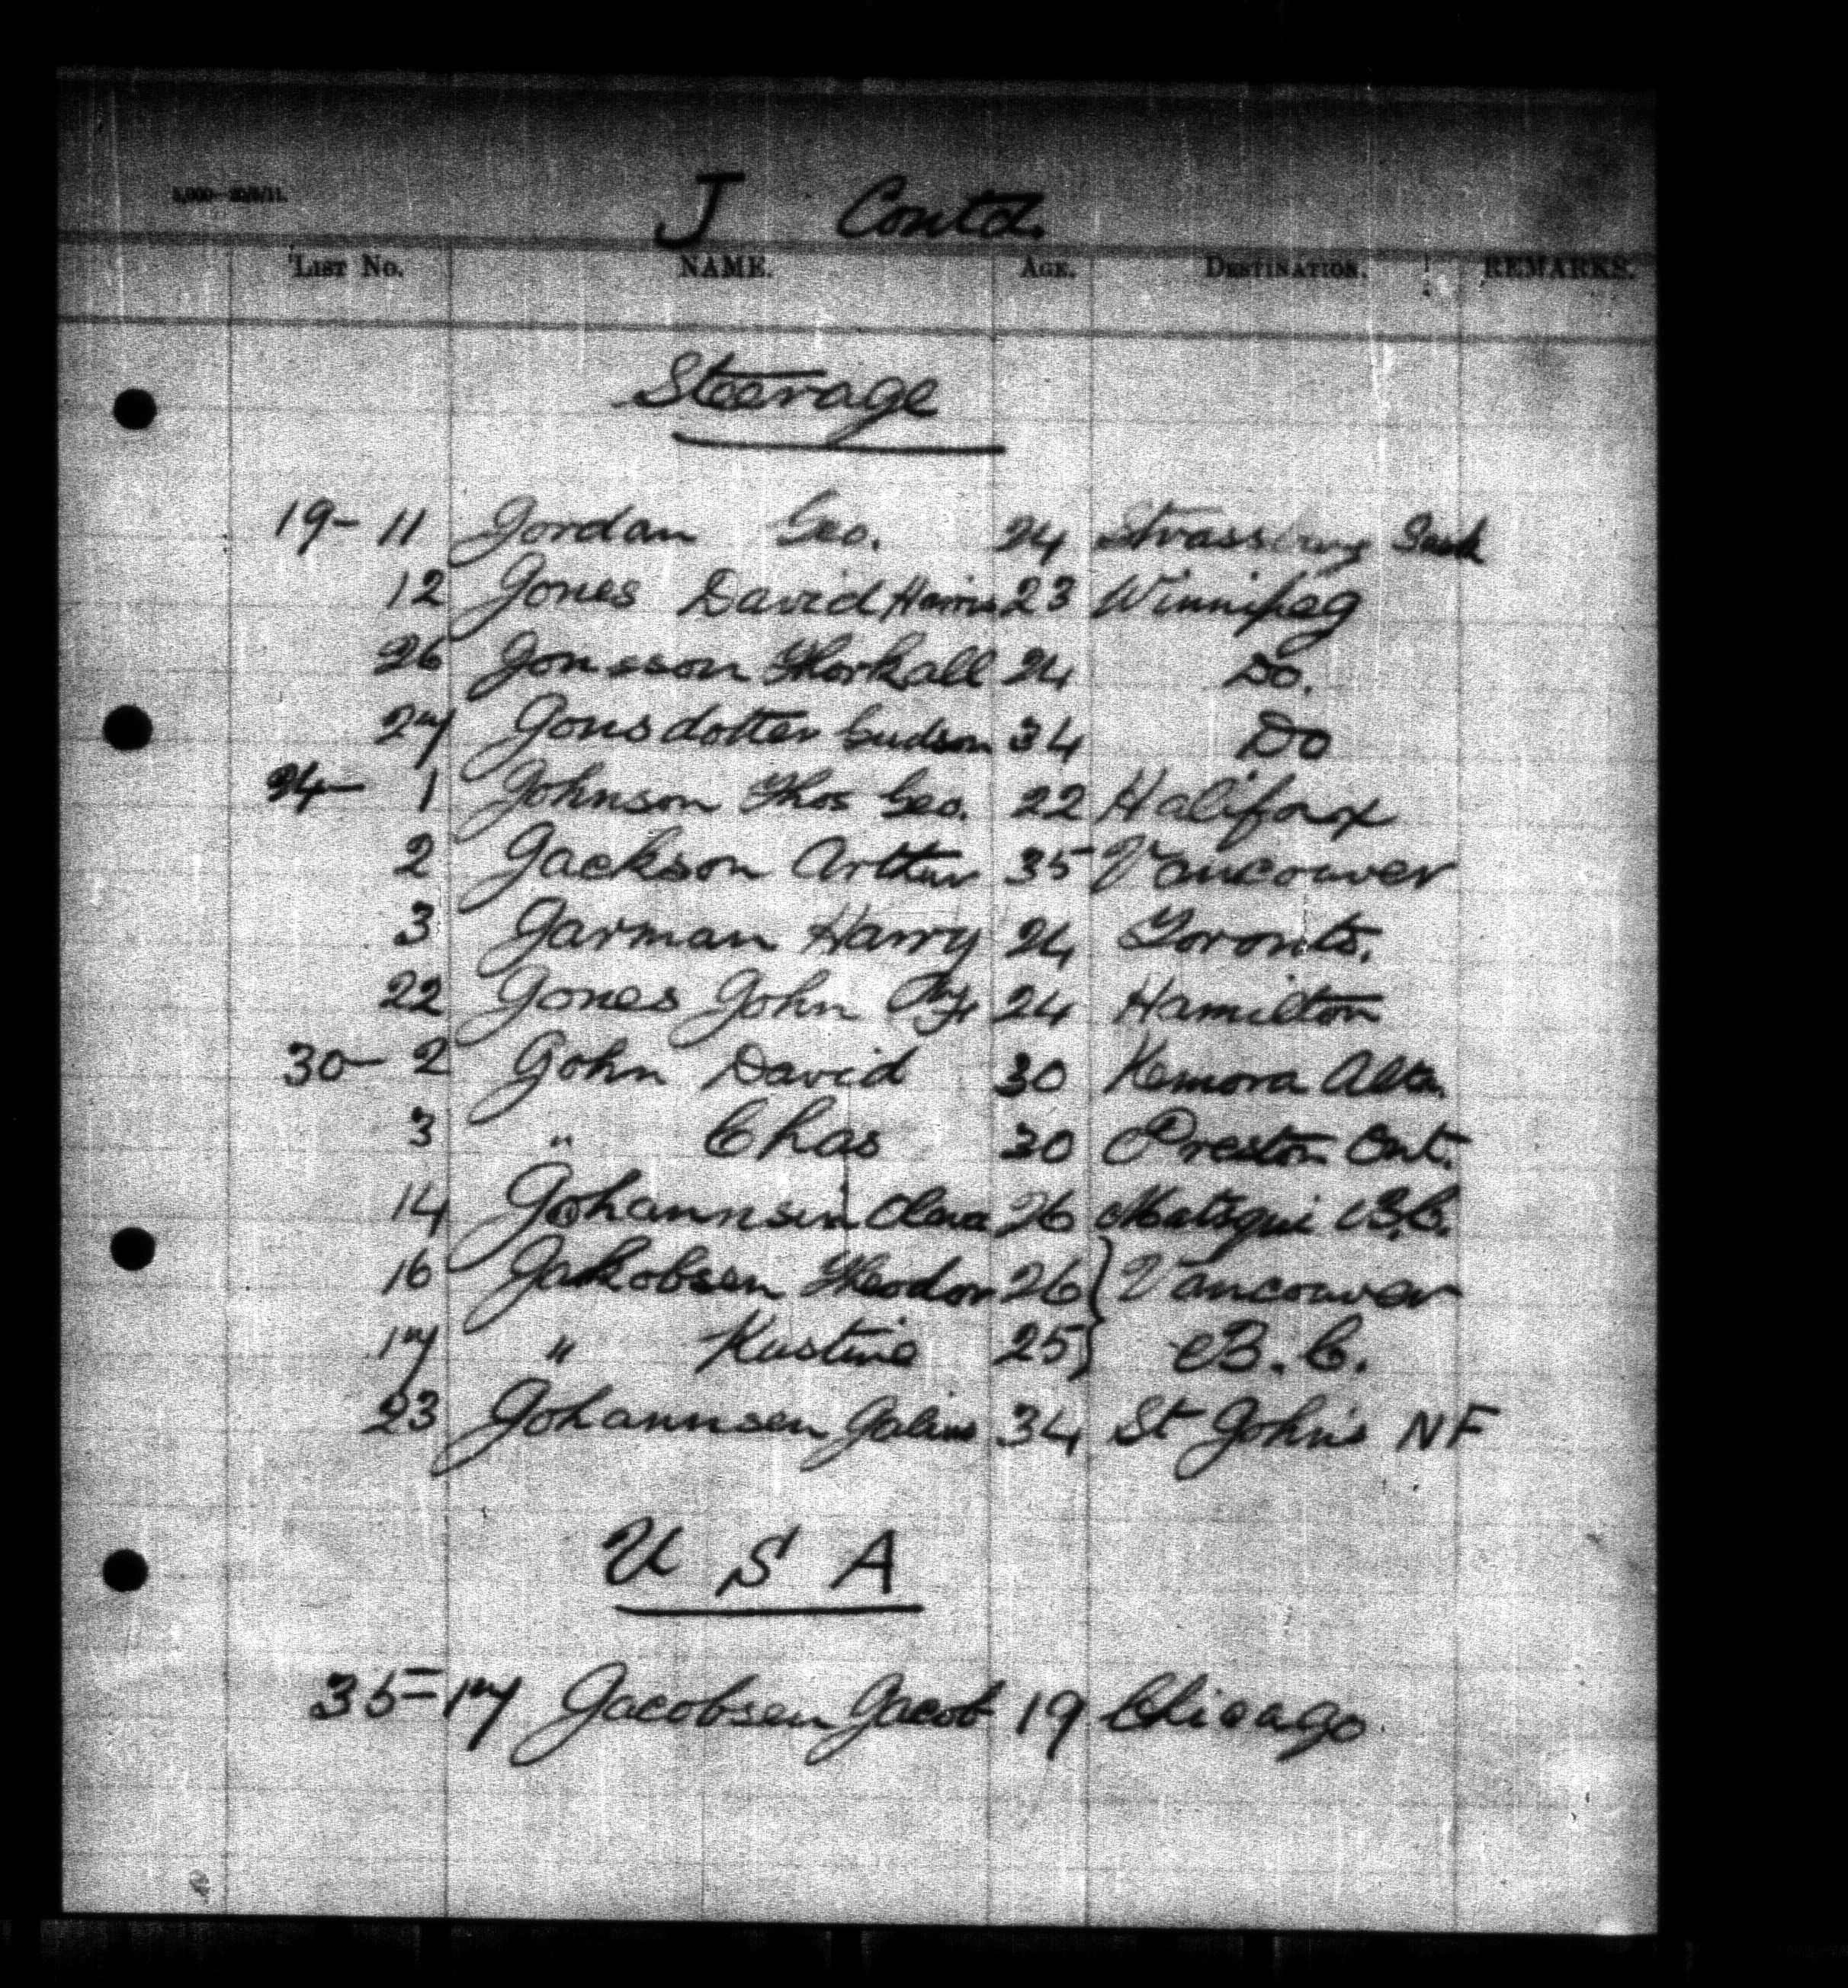 5,000—20/9/11.
J Contd.
LIST NO. NAME. AGE. DESTINATION. REMARKS.
Steerage
19-11 Jordan Geo. 24 Strassburg Sask
12 Jones David Harris 23 Winnipeg
26 Jonsson Thorkall 24 Do.
27 Jonsdotter Gudson 34 Do
24-1 Johnson Thos Geo. 22 Halifax
2 Jackson Arthur 35 Vancouver
3 Jarman Harry 24 Toronto.
22 Jones John 24 Hamilton
30-2 John David 30 Kemora Alta.
3 " Chas 30 Preston Ont.
14 Johannsen Olava 26 Matsqui B.C.
16 Jakobsen Theodor 26 } Vancouver
17 " Kustine 25 } B.C.
23 Johannsen 34 St John's NF
U S A
35-17 Jacobsen Jacob 19 Chicago